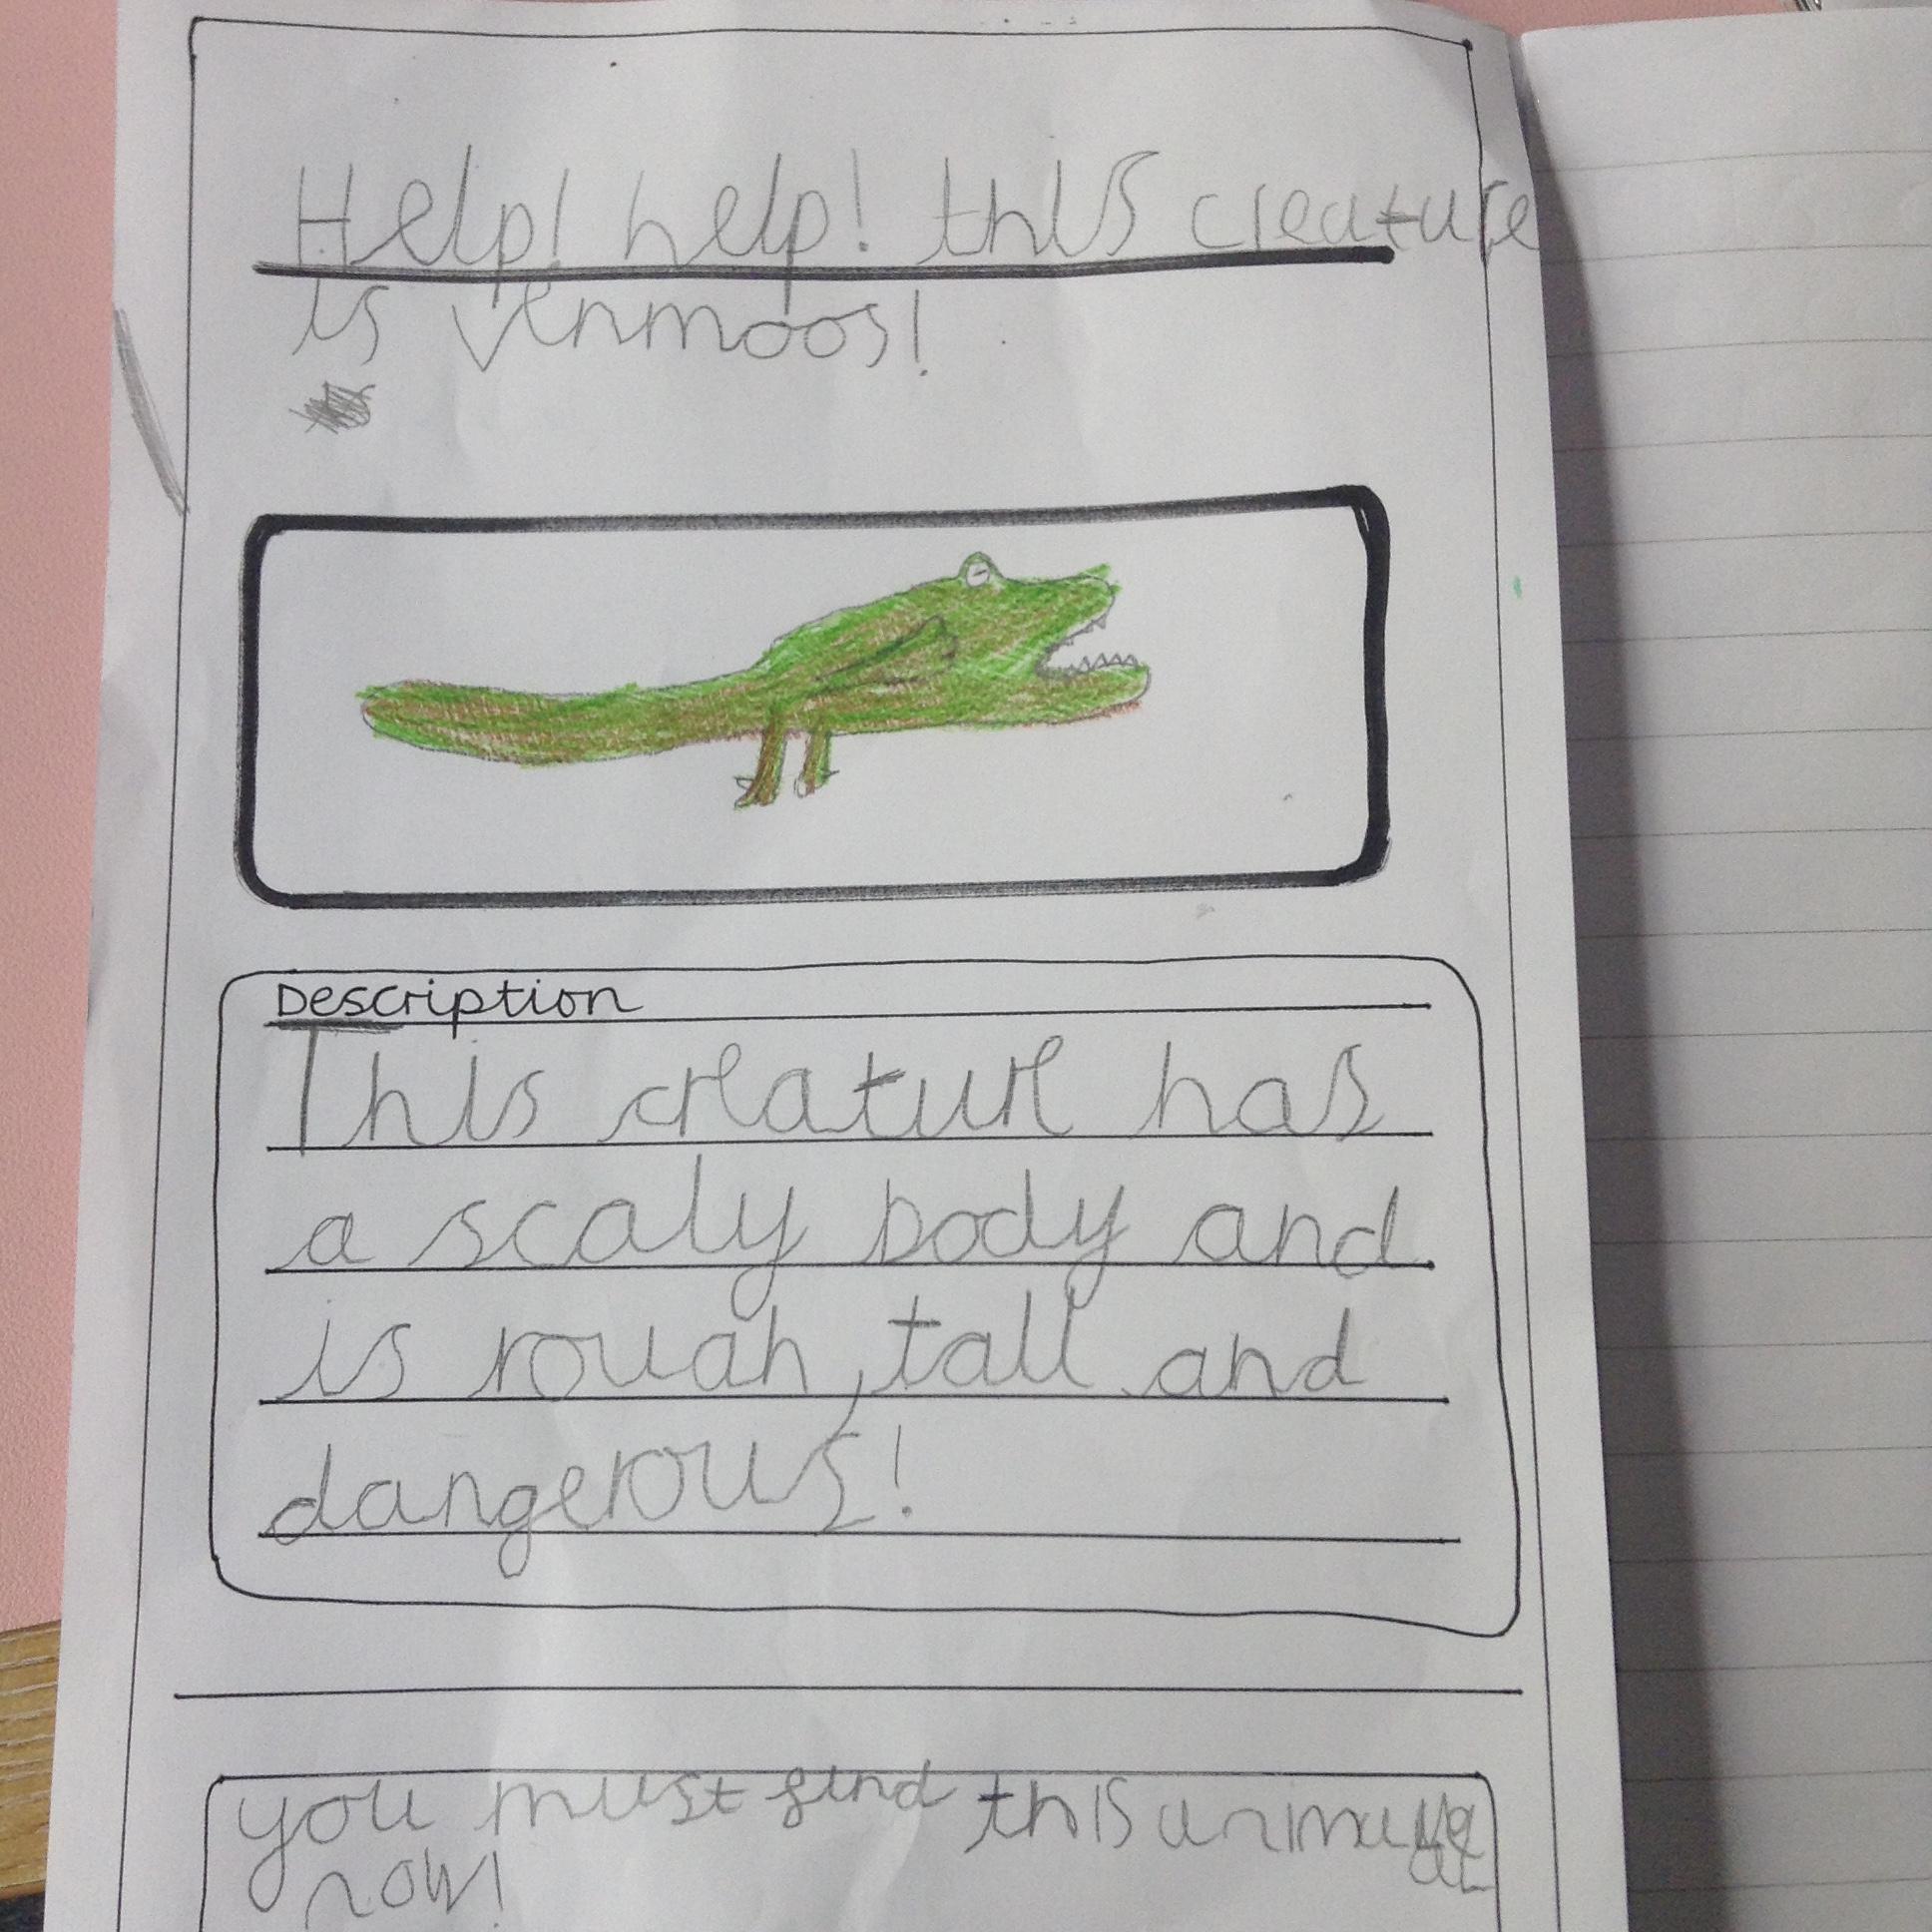 Help! help! this creature
is venmoos!
Description
This creature has
a scaly body and
is rouah, tall and
dangerous!
you must find this
now!